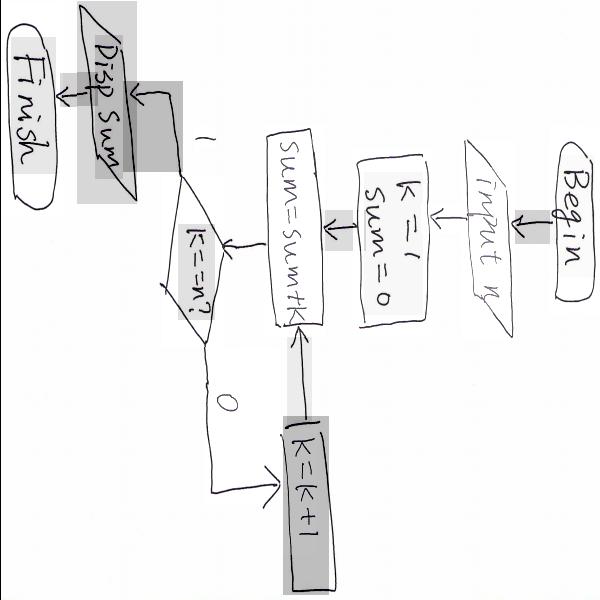 Begin
input n
k=1
sum=0
sum=sum+k
k==n?
1
0
k=k+1
Disp sum
Finish